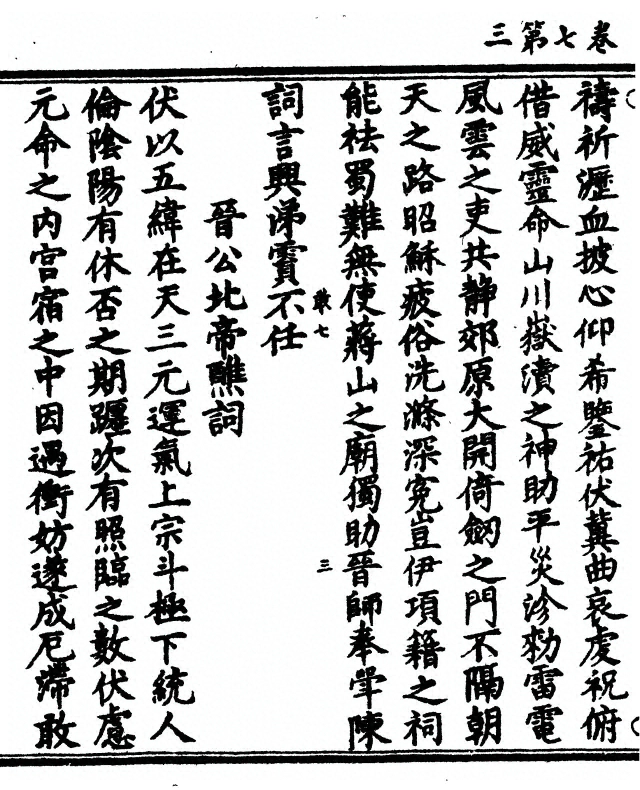 三第七卷
禱祈瀝血披心仰希鑒祐伏冀曲哀虔祝俯
借威靈命山川嶽瀆之神助平災沴勑雷電
風雲之吏共静郊原大開倚劒之門不隔朝
天之路昭穌疲俗洗滌深寃豈伊項籍之祠
能祛蜀難無使蔣山之廟獨助晉師奉犖陳
詞言興涕霣不任
敢七
三
晉公北帝醮詞
伏以五緯在天三元運氣上宗斗極下統人
倫陰陽有休否之期躔次有照臨之數伏慮
元命之内宫宿之中因遇衝妨遂成厄滯敢